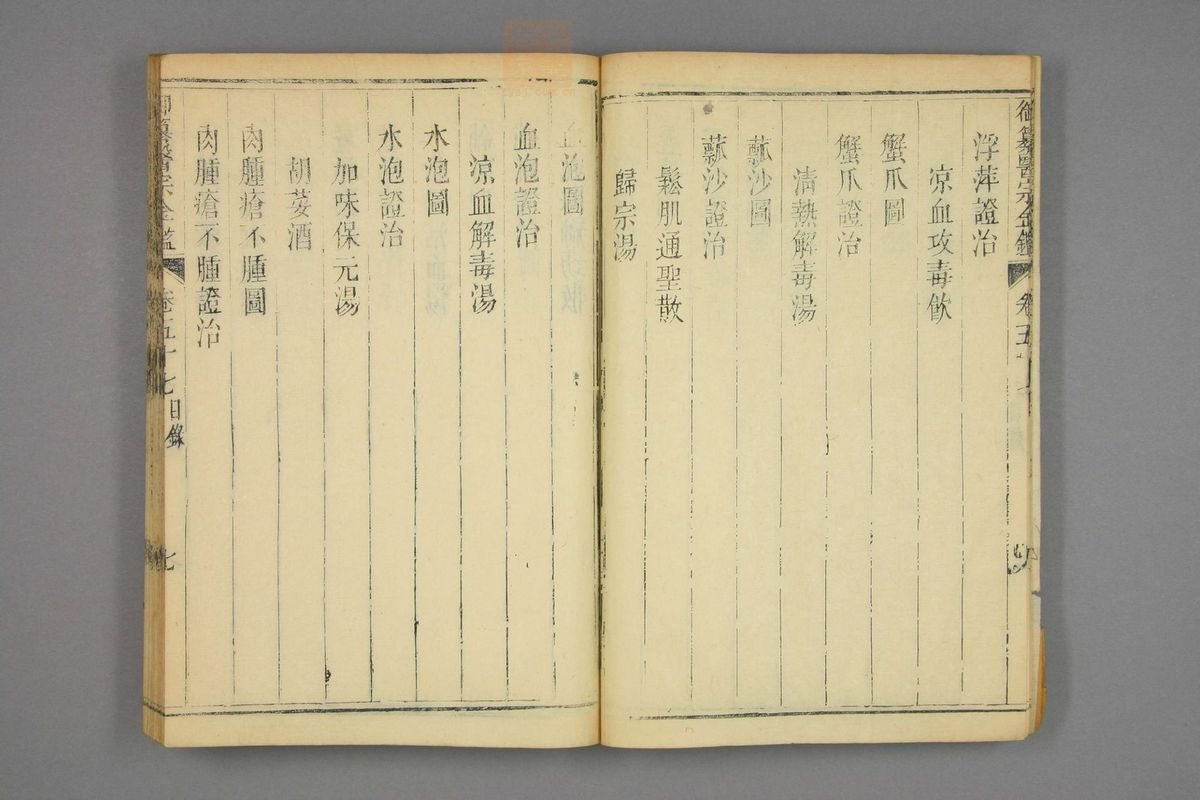 御纂醫宗金鑑
卷五十七
浮萍證治
凉血攻毒飮
蟹爪圖
蟹爪證治
清熱解毒湯
瓥沙圖
瓥沙證治
鬆肌通聖散
歸宗湯
血泡圖
血泡證治
涼血解毒湯
水泡圖
水泡證治
加味保元湯
胡荽酒
肉腫瘡不腫圖
肉腫瘡不腫證治
御纂醫宗金鑑
卷五十七目錄
七